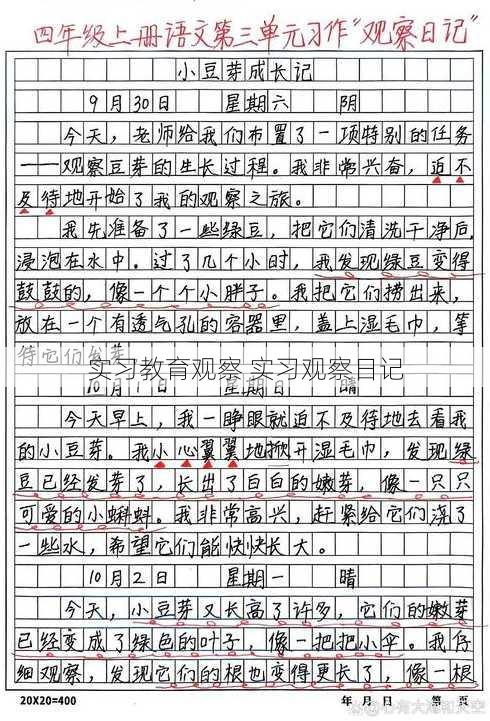 四年级上册语文第三单元习作“观察日记”
小豆芽成长记
9月30日 星期六 阴
今天，老师给我们布置了一项特别的任务
——观察豆芽的生长过程。我非常兴奋，迫不
及待地开始了我的观察之旅。
我先准备了一些绿豆，把它们清洗干净后，
浸泡在水中。过了几个小时，我发现绿豆变得
鼓鼓的，像一个个小胖子。我把它们捞出来，
放在一个有透气孔的容器里，盖上湿毛巾，等
待它们发芽
实习教育观察 实习观察日记
10月1日 星期日 晴
今天早上，我一睁眼就迫不及待地去看我
的小豆芽。我小心翼翼地掀开湿毛巾，发现绿
豆已经发芽了，长出了白白的嫩芽，像一只只
可爱的小蝌蚪。我非常高兴，赶紧给它们浇了
一些水，希望它们能快快长大。
10月2日 星期一 晴
今天，小豆芽又长高了许多，它们的嫩芽
已经变成了绿色的叶子，像一把把小伞。我仔
细观察，发现它们的根也变得更长了，像一根
20X20=400 年 月 日 第 页